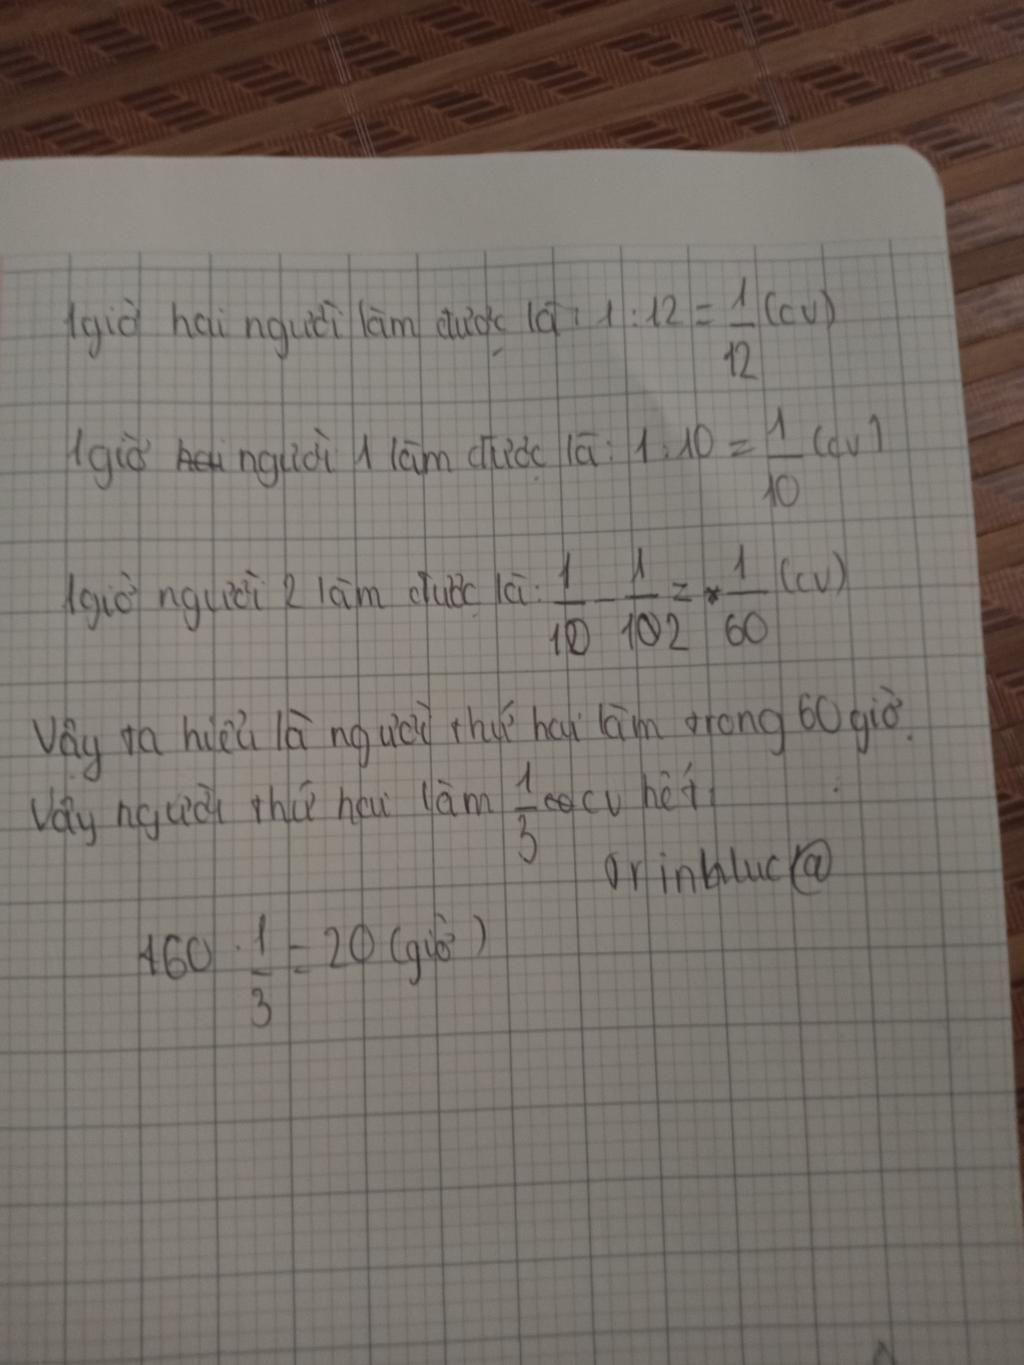 1giờ hai người làm được là: 1:12 = 1/12 (cv)
1giờ người 1 làm được là: 1:10 = 1/10 (cv)
1giờ người 2 làm được là: 1/10 - 1/12 = 1/60 (cv)
Vậy ta hiểu là người thứ hai làm trong 60 giờ.
Vậy người thứ hai làm 1/3 cv hết
60 . 1/3 = 20 (giờ)